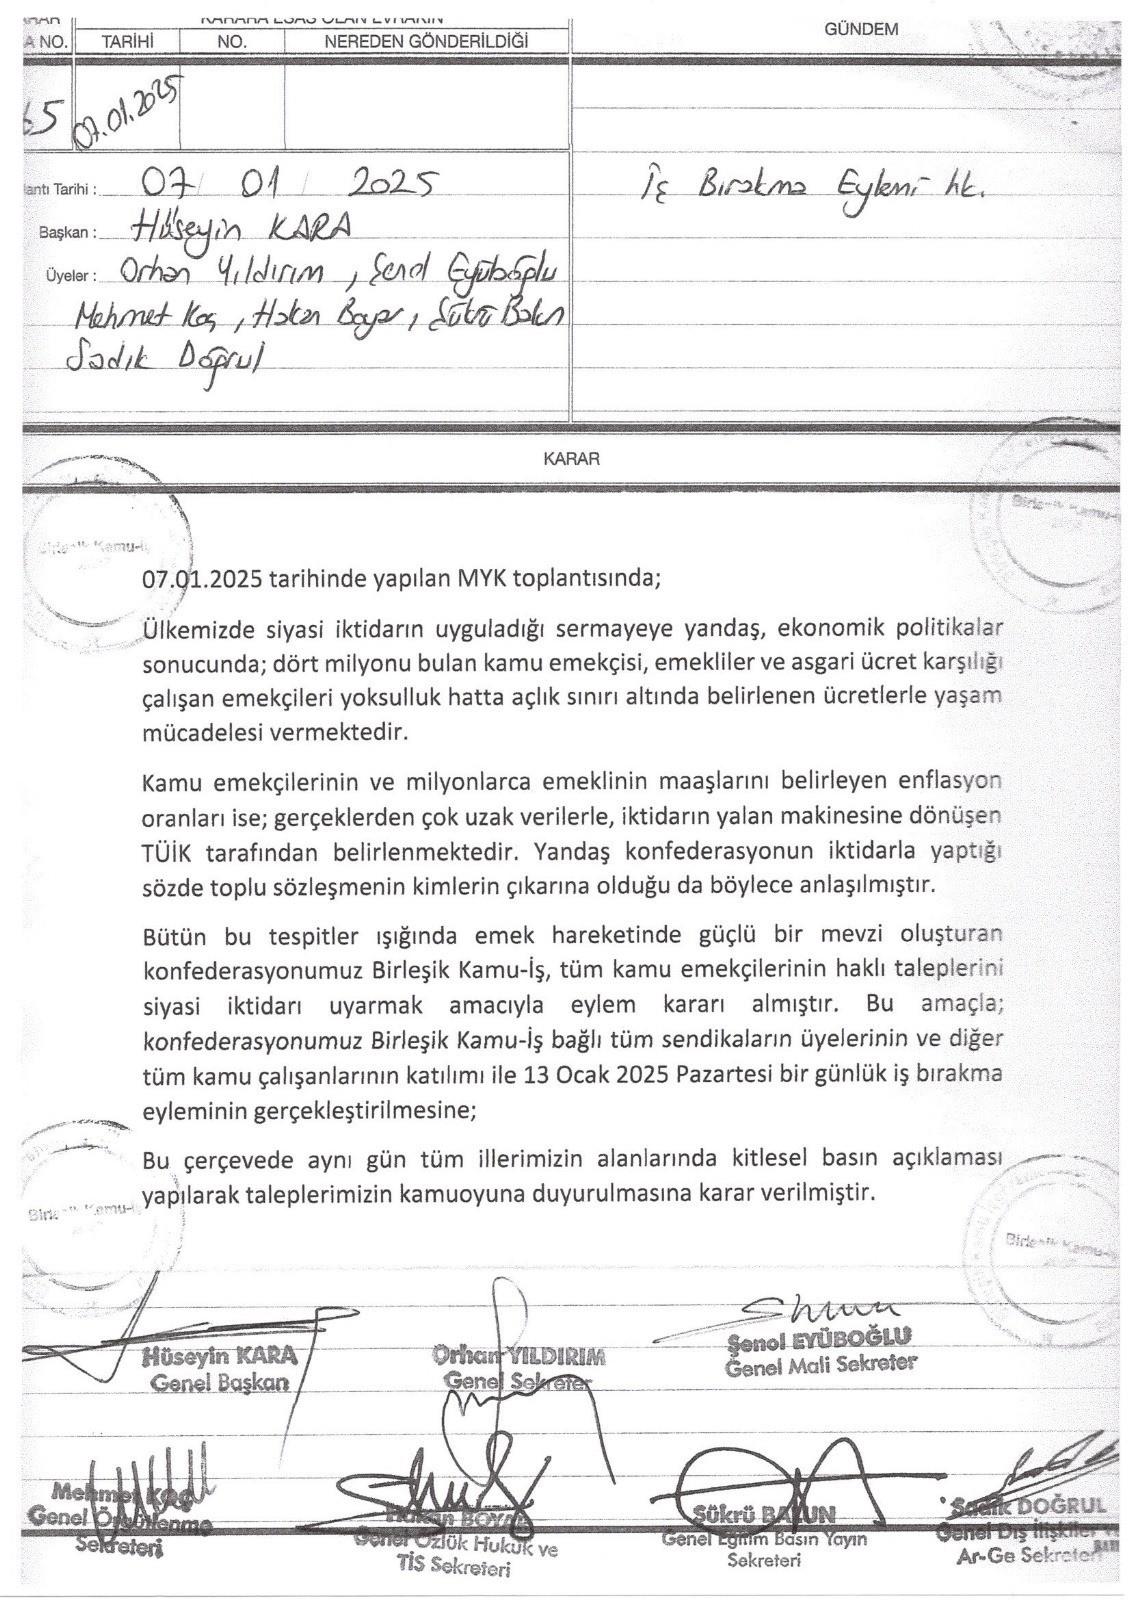 KARARA ESAS OLAN EVRAKIN
NO. TARİHİ NO. NEREDEN GÖNDERİLDİĞİ GÜNDEM
07.01.2025
Tarihi : 07 / 01 / 2025
İş Bırakma Eylemi hk.
Başkan : Hüseyin KARA
Üyeler : Orhan Yıldırım, Şenol Eyüboğlu
Mehmet Koç, Hakan Boyar, Şükrü Balun
Sadık Doğrul
KARAR
Birleşik Kamu-İş
Birleşik Kamu-İş
07.01.2025 tarihinde yapılan MYK toplantısında;
Ülkemizde siyasi iktidarın uyguladığı sermayeye yandaş, ekonomik politikalar
sonucunda; dört milyonu bulan kamu emekçisi, emekliler ve asgari ücret karşılığı
çalışan emekçileri yoksulluk hatta açlık sınırı altında belirlenen ücretlerle yaşam
mücadelesi vermektedir.
Kamu emekçilerinin ve milyonlarca emeklinin maaşlarını belirleyen enflasyon
oranları ise; gerçeklerden çok uzak verilerle, iktidarın yalan makinesine dönüşen
TÜİK tarafından belirlenmektedir. Yandaş konfederasyonun iktidarla yaptığı
sözde toplu sözleşmenin kimlerin çıkarına olduğu da böylece anlaşılmıştır.
Bütün bu tespitler ışığında emek hareketinde güçlü bir mevzi oluşturan
konfederasyonumuz Birleşik Kamu-İş, tüm kamu emekçilerinin haklı taleplerini
siyasi iktidarı uyarmak amacıyla eylem kararı almıştır. Bu amaçla;
konfederasyonumuz Birleşik Kamu-İş bağlı tüm sendikaların üyelerinin ve diğer
tüm kamu çalışanlarının katılımı ile 13 Ocak 2025 Pazartesi bir günlük iş bırakma
eyleminin gerçekleştirilmesine;
Bu çerçevede aynı gün tüm illerimizin alanlarında kitlesel basın açıklaması
yapılarak taleplerimizin kamuoyuna duyurulmasına karar verilmiştir.
Birleşik Kamu-İş
Birleşik Kamu-İş
Hüseyin KARA
Genel Başkan
Orhan YILDIRIM
Genel Sekreter
Şenol EYÜBOĞLU
Genel Mali Sekreter
Mehmet KOÇ
Genel Örgütlenme
Sekreteri
Genel Özlük Hukuk ve
TİS Sekreteri
Şükrü BALUN
Genel Eğitim Basın Yayın
Sekreteri
Sadık DOĞRUL
Genel Dış İlişkiler
Ar-Ge Sekreteri